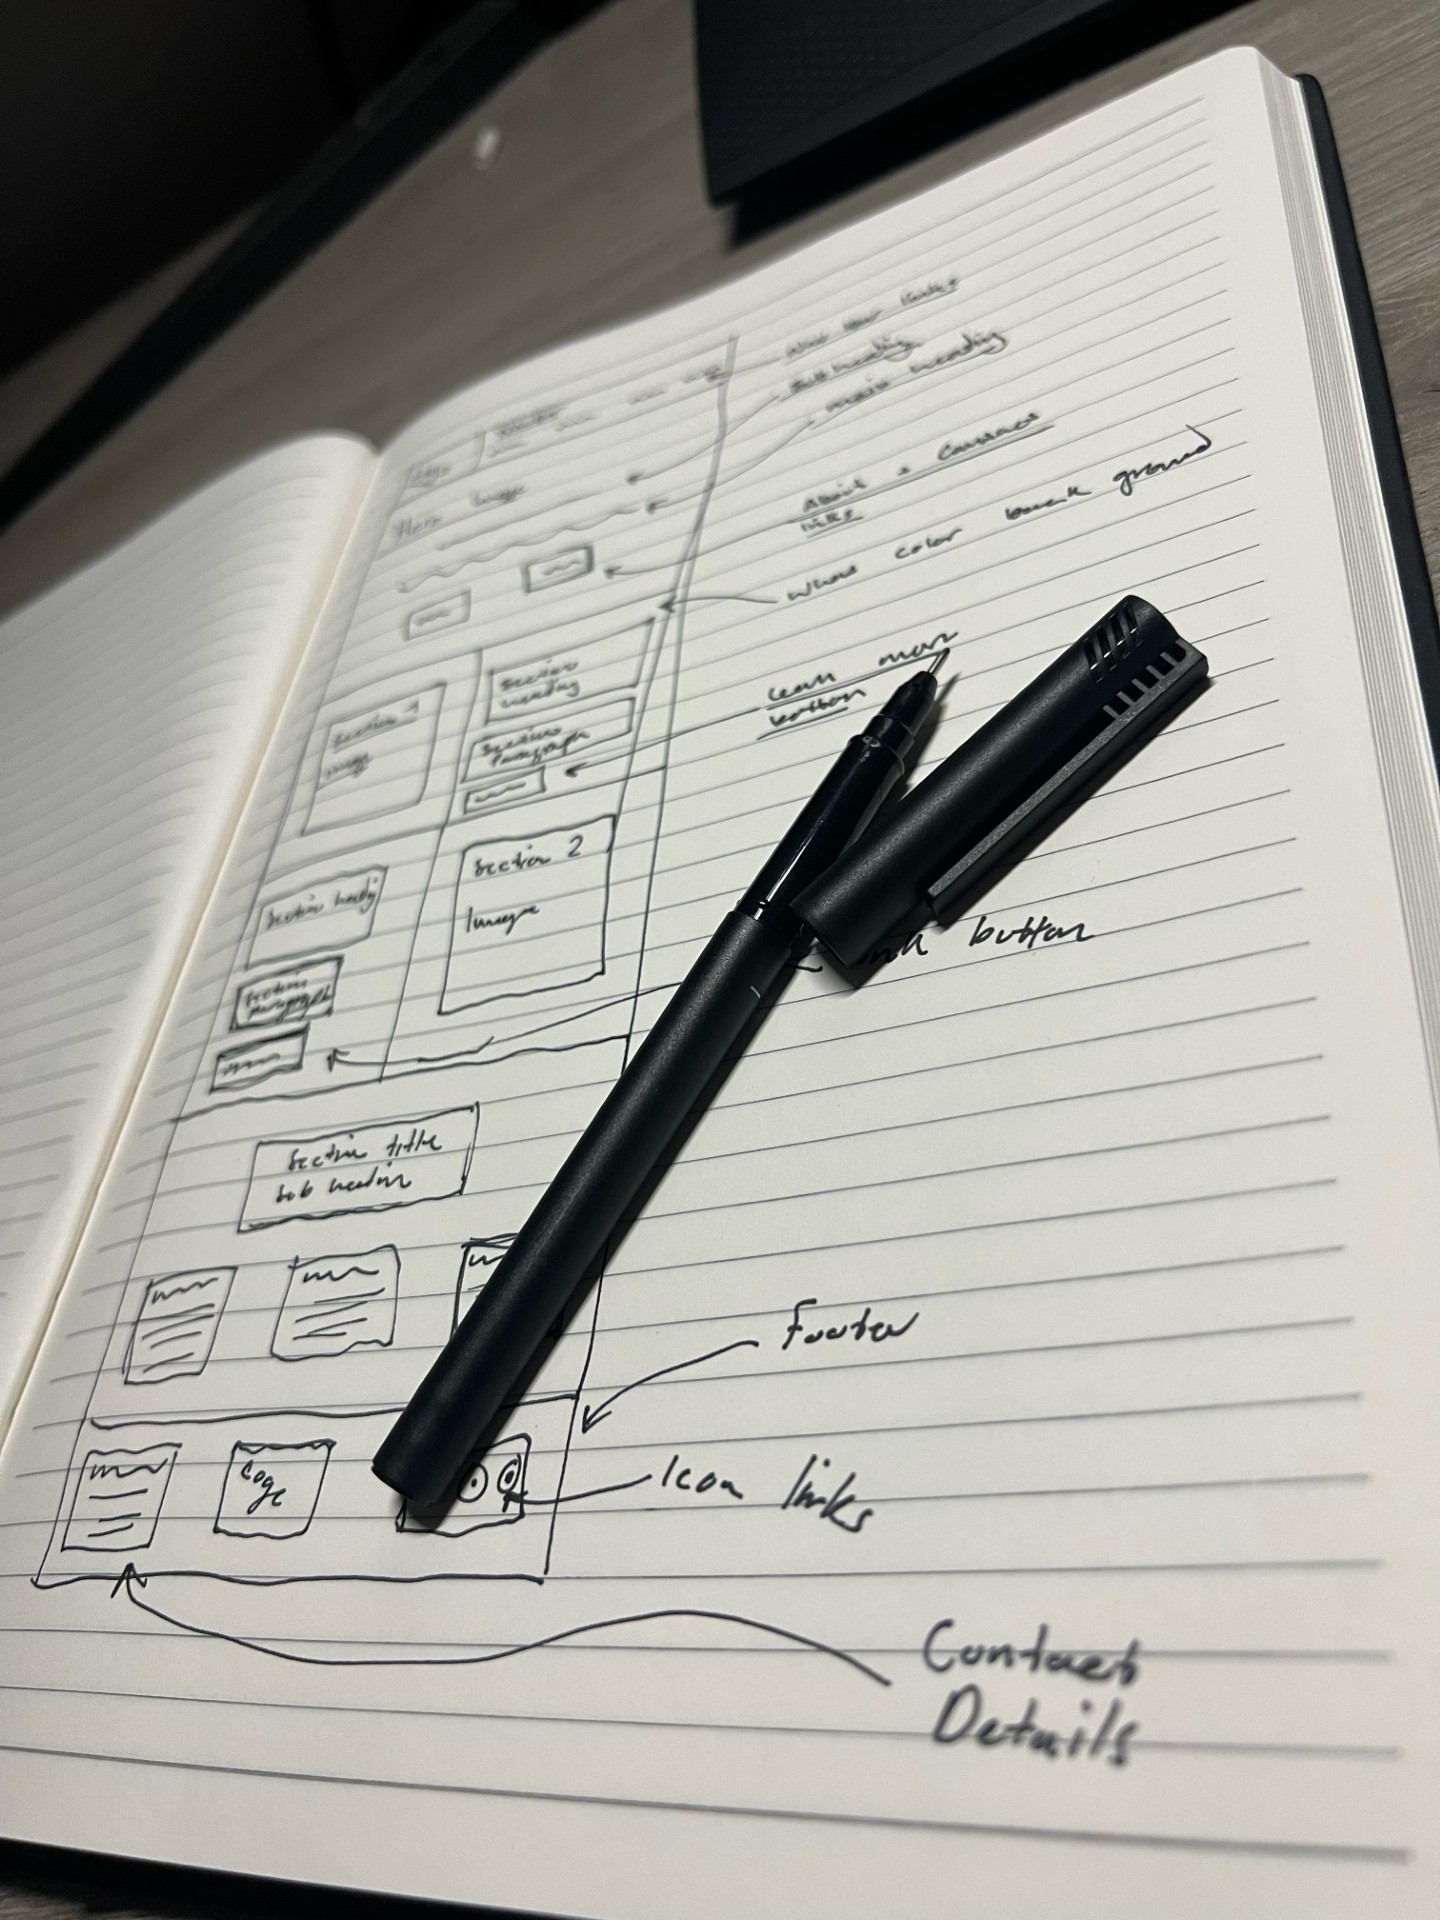 Nav bar links
Sub heading
main heading
Hero Image
About + Contact
links
color back ground
Section
heading
Section 1
Image
Section
Paragraph
Learn mor
button
Section 2
Image
Section
Section
Paragraph
button
Section title
Sub headin
Footer
Logo
Icon links
Contact
Details